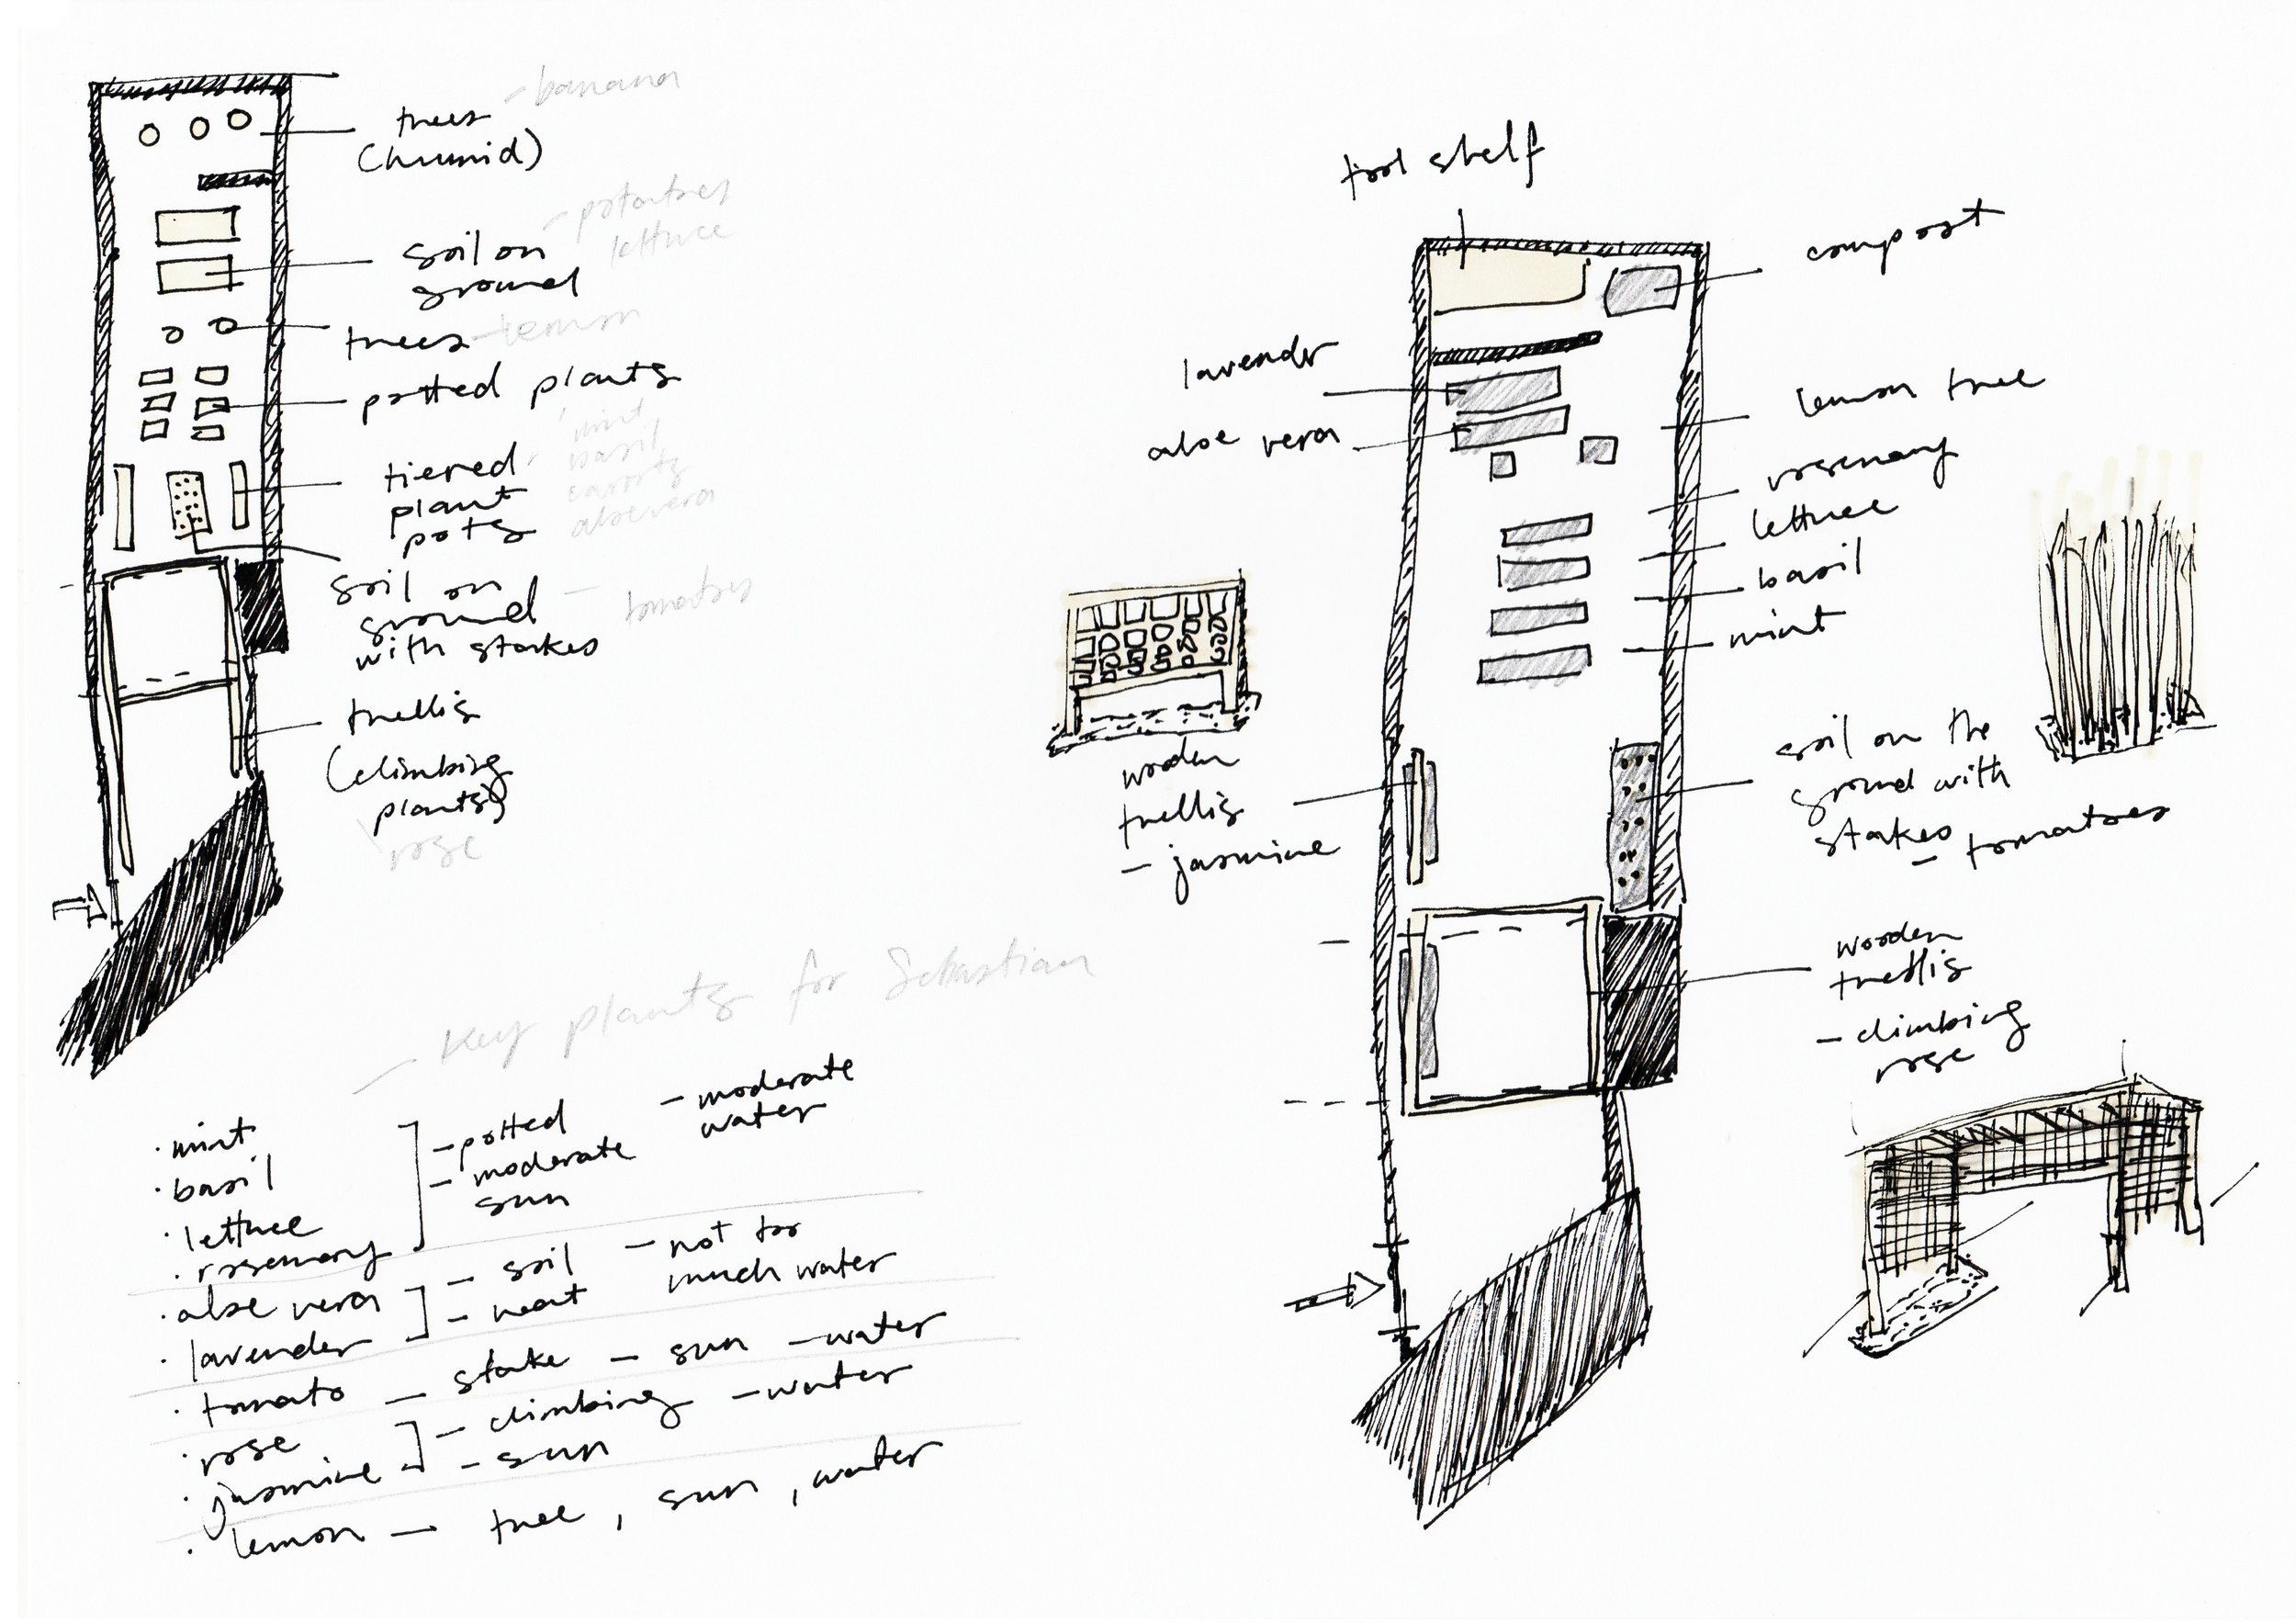 trees - banana
(humid)
soil on - potatoes
ground lettuce
trees - lemon
potted plants
tiered
plant
pots
mint
basil
carrots
aloevera
soil on
ground - tomatoes
with stakes
trellis
(climbing
plants)
rose
Key plants for Sebastian
· mint
· basil
· lettuce
· rosemary
- potted - moderate
water
- moderate
sun
· aloe vera
· lavender
- soil - not too
much water
- heat
· tomato - stake - sun - water
· rose
· jasmine
- climbing - water
- sun
· lemon - tree, sun, water
tool shelf
compost
lavender
aloe vera
lemon tree
rosemary
lettuce
basil
mint
wooden
trellis
- jasmine
soil on the
ground with
stakes
- tomatoes
wooden
trellis
- climbing
rose